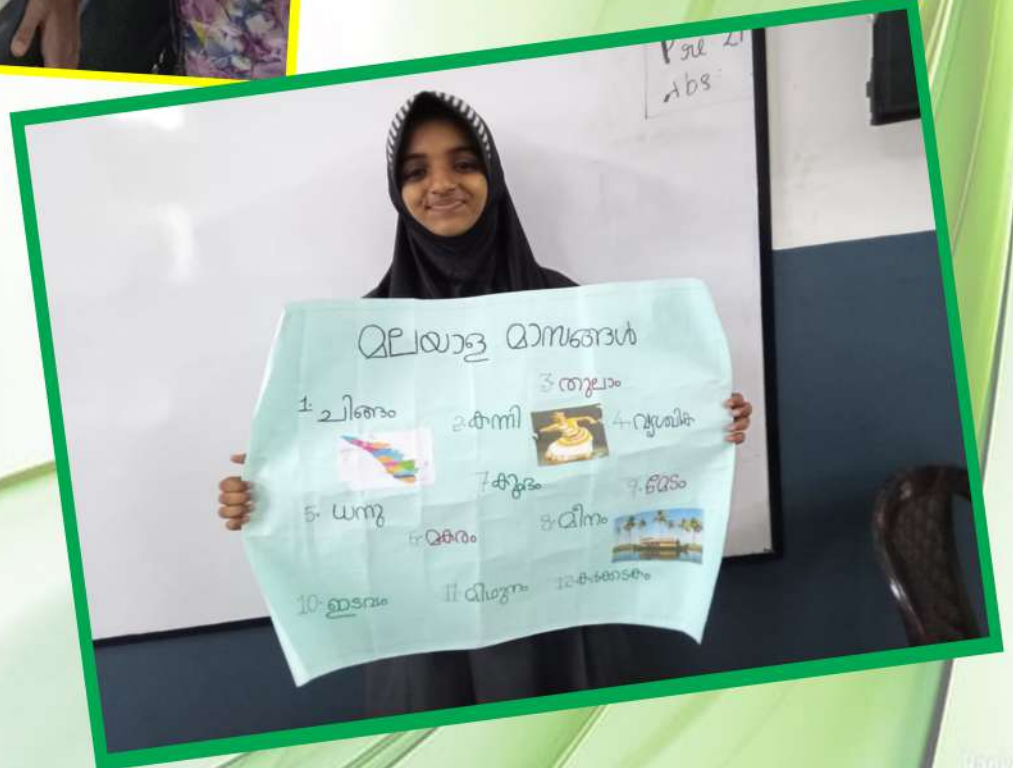 Pre
Abs
മലയാള മാസങ്ങൾ
1. ചിങ്ങം
2. കന്നി
3. തുലാം
4. വൃശ്ചിക
5. ധനു
6. മകരം
7. കുംഭം
8. മീനം
9. മേടം
10. ഇടവം
11. മിഥുനം
12. കർക്കടകം